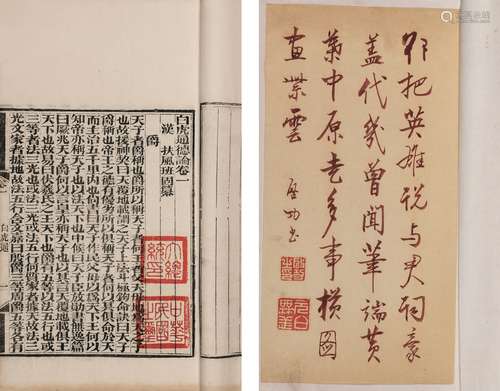 白虎通德論卷一
漢 扶風班固纂
爵
天子者爵稱也爵所以稱天子者何王者父天母地為天之子
也故援神契曰天覆地載謂之天子上法斗極鉤命決曰天子
爵稱也帝王之德有優劣所以俱稱天子者何以其俱命於天
而主治五千里內也尚書曰天子作民父母以為天下王何以
知帝亦稱天子也以法天下也中候曰天子臣放勛書亡逸篇
曰厥兆天子爵何以言皇亦稱天子也以其言天覆地載俱王
天下也故易曰伏羲氏之王天下也爵有五等以法五行也或
三等者法三光也或法三光或法五行何質家者據天故法三
光文家者據地故法五行含文嘉曰殷爵三等周爵五等各有
白虎通
大總統印
中華民國
那把英雄說與君詞豪
蓋代幾曾聞筆端黃
葉中原走多事橫圖
畫紫雲 啟功書